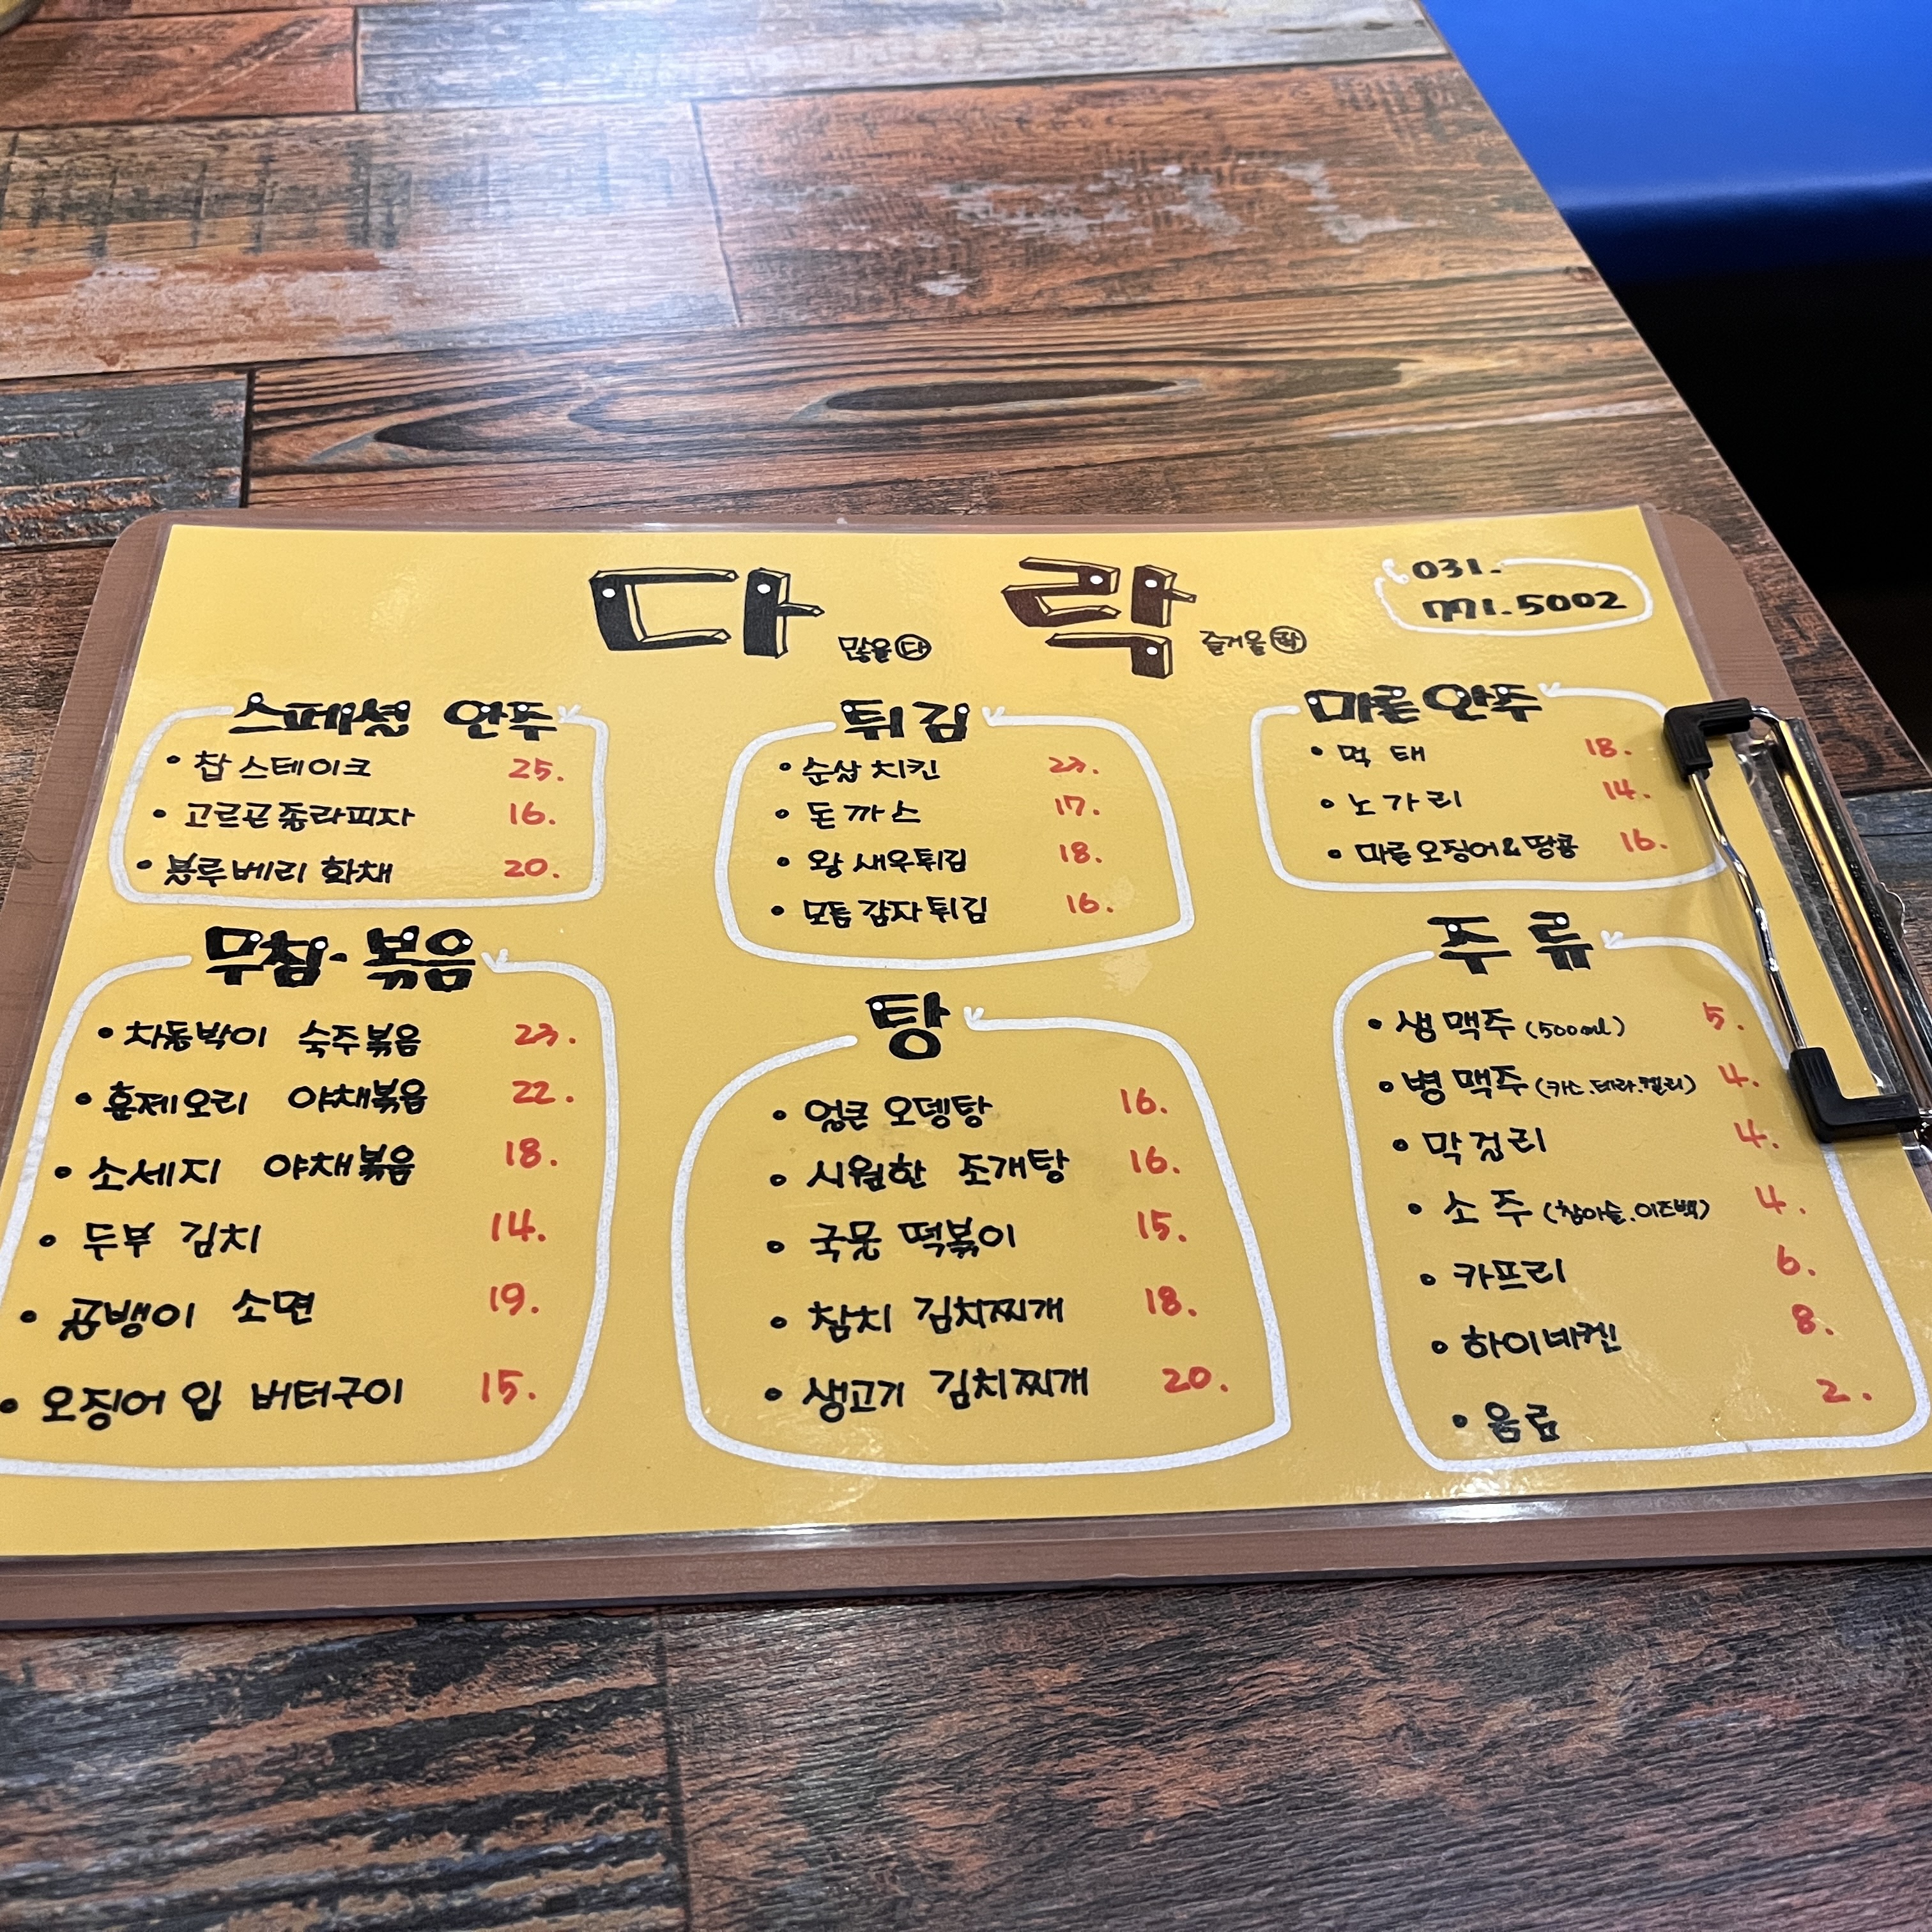 다 락
많을 다 즐거울 락
031.
771.5002
스페셜 안주
• 찹스테이크 25.
• 고르곤졸라피자 16.
• 블루베리 화채 20.
무침·볶음
• 차돌박이 숙주볶음 23.
• 훈제오리 야채볶음 22.
• 소세지 야채볶음 18.
• 두부 김치 14.
• 골뱅이 소면 19.
• 오징어 입 버터구이 15.
튀김
• 순살 치킨 23.
• 돈까스 17.
• 왕새우튀김 18.
• 모듬감자튀김 16.
탕
• 얼큰 오뎅탕 16.
• 시원한 조개탕 16.
• 국물 떡볶이 15.
• 참치 김치찌개 18.
• 생고기 김치찌개 20.
마른안주
• 먹태 18.
• 노가리 14.
• 마른오징어&땅콩 16.
주류
• 생맥주 (500ml) 5.
• 병맥주 (카스.테라.켈리) 4.
• 막걸리 4.
• 소주 (참이슬.이즈백) 4.
• 카프리 6.
• 하이네켄 8.
• 음료 2.